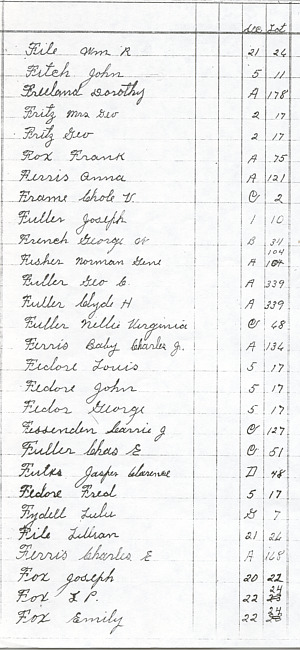 Sec. Lot
File Wm R 21 26
Fitch John 5 11
Freeland Dorothy A 178
Fritz Mrs Geo 2 17
Fritz Geo 2 17
Fox Frank A 75
Ferris Anna A 121
Frame Chole V. C 2
Fuller Joseph 1 10
French George W B 34
Fisher Norman Gene A 104
Fuller Geo C. A 339
Fuller Clyde H A 339
Fuller Nellie Virginia C 68
Ferris Baby Charles J. A 134
Fedore Louis 5 17
Fedore John 5 17
Fedor George 5 17
Fessenden Carrie J C 127
Fuller Chas E C 51
Fulks Jasper Clarence D 48
Fedore Fred 5 17
Fydell Lulu G 7
File Lillian 21 26
Ferris Charles E A 168
Fox Joseph 20 22
Fox L P. 22 24
Fox Emily 22 24